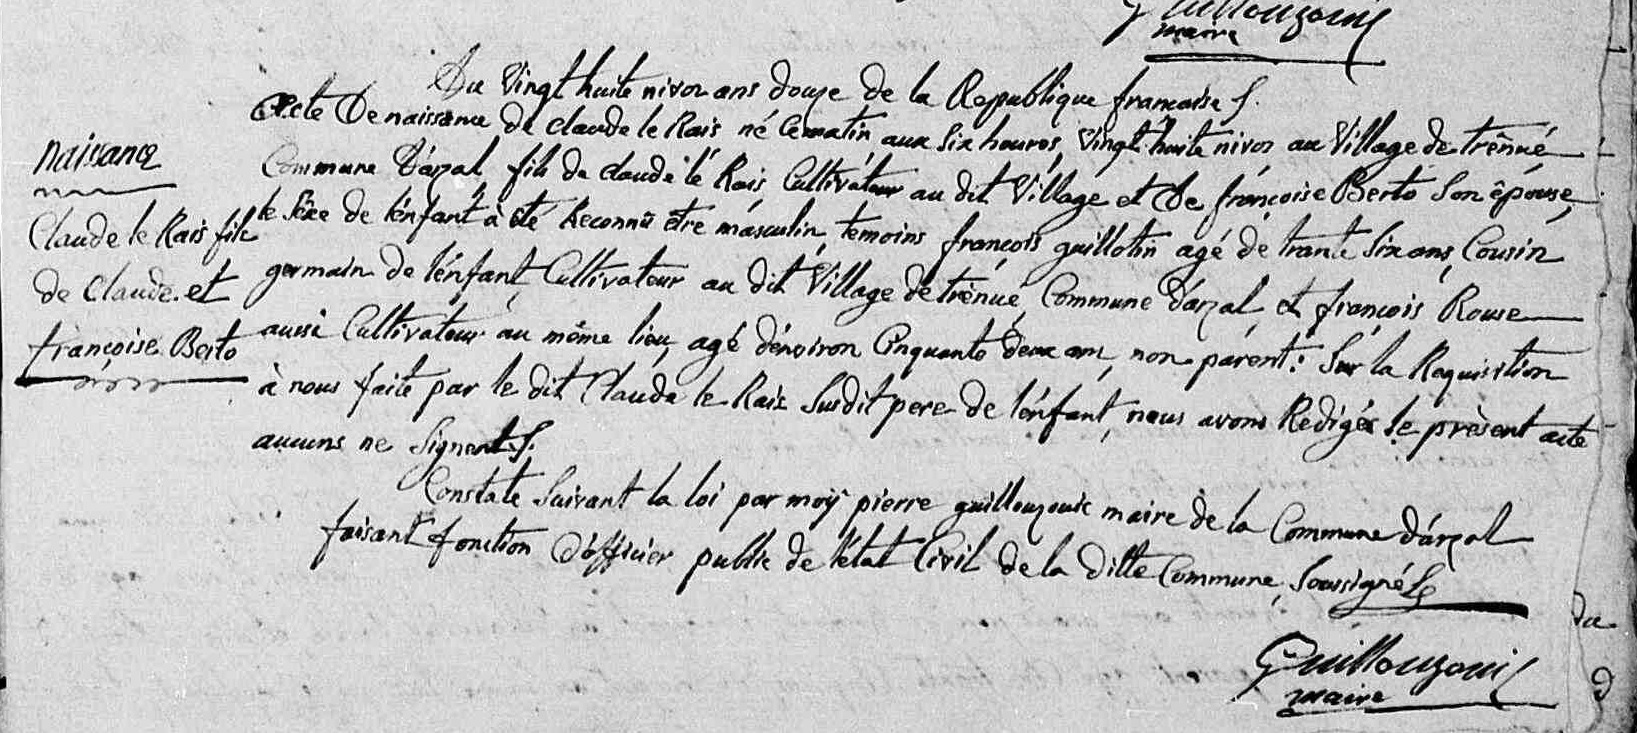 Guillouzouic
maire
Du Vingt huite nivoz ans douze de la Republique françaisse S.
Acte De naissance de claude le Rais né le matin aux six houres, Vingt huite nivoz au Village de trênué
Commune D'arzal fils de claude lé Rais Cultivateur au dit Village et De françoise Berto Son êpouse,
le sexe de lénfant à été Reconnû être masculin, temoins françois guillotin agé de trante Six ans, Cousin
germain de lénfant, Cultivateur au dit Village de trênué, Commune D'arzal, et françois Rouse
aussi Cultivateur au même lieu, agé dénviron Cinquante deux ans, non parent: Sur la Requisition
à nous faite par le dit Claude le Rais Susdit pere de lénfant, nous avons Redigés le prèsent acte
aucuns ne Signent S.
Constate Suivant la loi par moÿ pierre guillouzouic maire de la Commune D'arzal
faisant fonction D'officier public de l'état Civil de la Ditte Commune, Soussigné
Guillouzouic
maire
naisance
Claude le Rais fils
de Claude et
françoise Berto
du